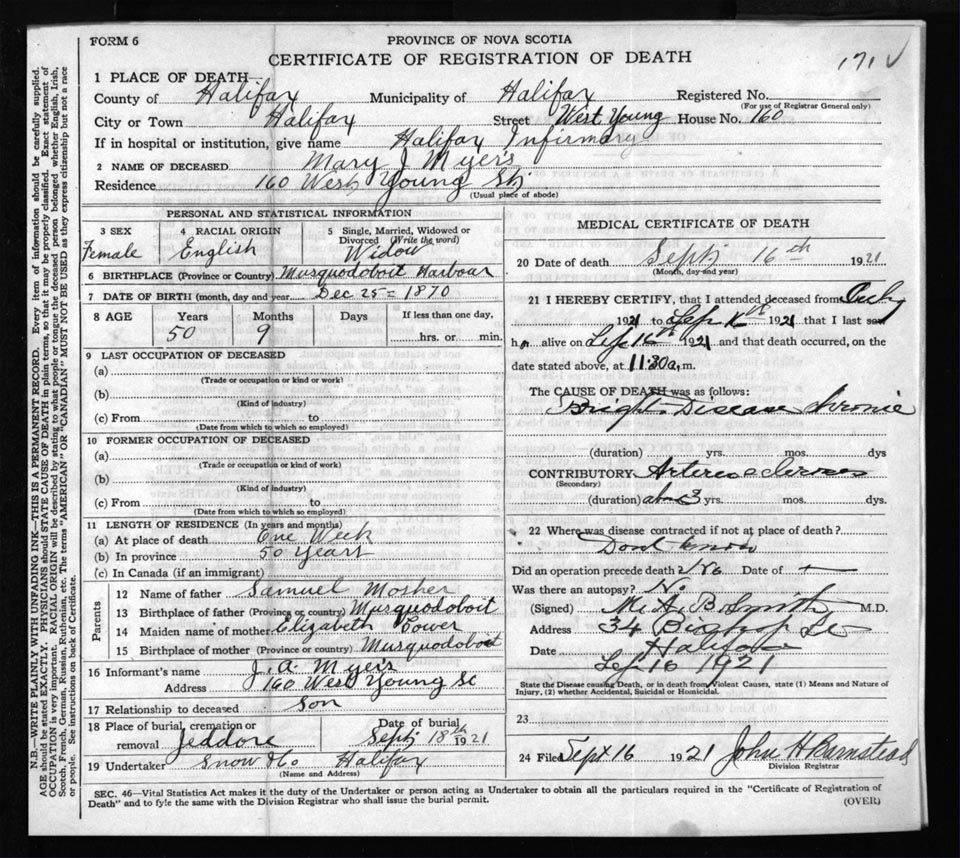 FORM 6
PROVINCE OF NOVA SCOTIA
CERTIFICATE OF REGISTRATION OF DEATH
171 V
1 PLACE OF DEATH—
County of Halifax Municipality of Halifax Registered No.
(For use of Registrar General only)
City or Town Halifax Street West Young House No. 160
If in hospital or institution, give name Halifax Infirmary
2 NAME OF DECEASED Mary J Myers
Residence 160 West Young St.
(Usual place of abode)
PERSONAL AND STATISTICAL INFORMATION
3 SEX Female
4 RACIAL ORIGIN English
5 Single, Married, Widowed or Divorced (Write the word) Widow
6 BIRTHPLACE (Province or Country) Musquodoboit Harbour
7 DATE OF BIRTH (month, day and year) Dec 25 = 1870
8 AGE Years Months Days If less than one day,
50 9 hrs. or min.
9 LAST OCCUPATION OF DECEASED
(a)
(Trade or occupation or kind or work)
(b)
(Kind of industry)
(c) From to
(Date from which to which so employed)
10 FORMER OCCUPATION OF DECEASED
(a)
(Trade or occupation or kind of work)
(b)
(Kind of industry)
(c) From to
(Date from which to which so employed)
11 LENGTH OF RESIDENCE (In years and months)
(a) At place of death One Week
(b) In province 50 Years
(c) In Canada (if an immigrant)
Parents
12 Name of father Samuel Mosher
13 Birthplace of father (Province or country) Musquodoboit
14 Maiden name of mother Elizabeth
15 Birthplace of mother (Province or country) Musquodoboit
16 Informant's name J. A. Myers
Address 160 West Young St
17 Relationship to deceased Son
18 Place of burial, cremation or removal Jeddore
Date of burial Sept 18th 1921
19 Undertaker Snow & Co Halifax
(Name and Address)
MEDICAL CERTIFICATE OF DEATH
20 Date of death Sept 16th 1921
(Month, day and year)
21 I HEREBY CERTIFY, that I attended deceased from
1921 to Sep 16th 1921 that I last saw
h alive on Sep 16th 1921 and that death occurred, on the
date stated above, at 11:30 a.m.
The CAUSE OF DEATH was as follows:
Bright Disease
(duration) yrs. mos. dys.
CONTRIBUTORY
(Secondary)
(duration) 3 yrs. mos. dys.
22 Where was disease contracted if not at place of death?
Dont know
Did an operation precede death? No Date of
Was there an autopsy? No
(Signed) M. A. B. Smith M.D.
Address 34 Bishop St
Halifax
Date Sep 16 1921
State the Disease causing Death, or in death from Violent Causes, state (1) Means and Nature of
Injury, (2) whether Accidental, Suicidal or Homicidal.
23
24 Filed Sept 16 1921 John H Barnstead
Division Registrar
SEC. 46—Vital Statistics Act makes it the duty of the Undertaker or person acting as Undertaker to obtain all the particulars required in the "Certificate of Registration of
Death" and to fyle the same with the Division Registrar who shall issue the burial permit.
(OVER)
N.B.—WRITE PLAINLY WITH UNFADING INK—THIS IS A PERMANENT RECORD. Every item of information should be carefully supplied.
AGE should be stated EXACTLY. PHYSICIANS should STATE CAUSE OF DEATH in plain terms, so that it may be properly classified. Exact statement of
OCCUPATION is very important. RACIAL ORIGIN will be described by stating to what people or tongue the deceased person belonged whether English, Irish,
Scotch, French, German, Russian, Ruthenian, etc. The terms "AMERICAN" or "CANADIAN" MUST NOT BE USED as they express citizenship but not a race
or people. See instructions on back of Certificate.